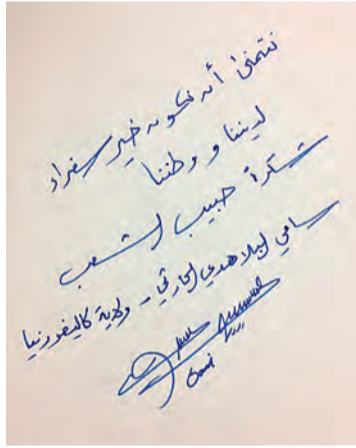 نتمنى أن نكون خير سفراء
لديننا و وطننا
شكراً حبيب الشعب
سامي البلاهدي الحارثي - ولاية كاليفورنيا
Sami